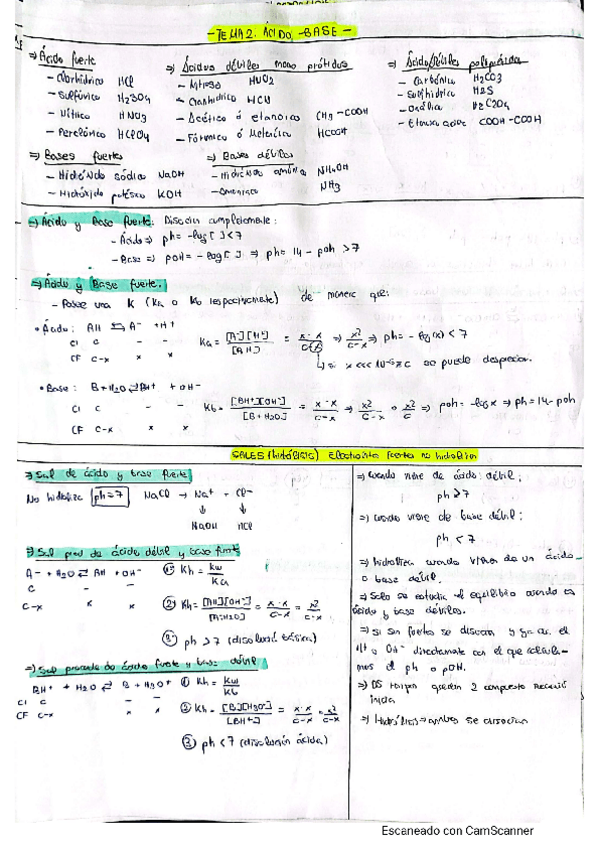 - TEMA 2. ÁCIDO - BASE -
⇒ Ácido fuerte
- Clorhídrico HCl
- Sulfúrico H2SO4
- Nítrico HNO3
- Perclórico HClO4
⇒ Ácidos débiles mono próticos
- Nitroso HNO2
- Cianhídrico HCN
- Acético ó etanoico CH3-COOH
- Fórmico ó Metanoico HCOOH
⇒ Ácidos débiles
- Carbónico H2CO3
- Sulfhídrico H2S
- Oxálico H2C2O4
COOH-COOH
⇒ Bases fuertes
- Hidróxido sódico NaOH
- Hidróxido potásico KOH
⇒ Bases débiles
- Hidróxido NH4OH
- Amoniaco NH3
⇒ Ácido y Base fuerte: Disocian completamente:
- Ácido ⇒ ph = -log[ ] < 7
- Base ⇒ poH = -log[ ] ⇒ ph = 14 - poh > 7
⇒ Ácido y Base fuerte.
- Posee una K (Ka o Kb respectivamente) de manera que:
• Ácido: AH ⇆ A- + H+
CI C - -
CF C-x x x
Ka = [A-][H+] / [AH] = x·x / C-x ⇒ x2 / C-x ⇒ ph = -log(x) < 7
se puede despreciar.
• Base: B + H2O ⇄ BH+ + OH-
CI C - -
CF C-x x x
Kb = [BH+][OH-] / [B+H2O] = x·x / C-x ⇒ x2 / C-x ó x2 / C ⇒ poH = -log x ⇒ ph = 14 - poh
SALES (hidrólisis) Electrolitos fuertes no hidrolizan
⇒ Sal de ácido y base fuerte
No hidroliza ph=7 NaCl → Na+ + Cl-
NaOH HCl
⇒ Sal proced de ácido débil y base fuerte
A- + H2O ⇄ AH + OH-
C - -
C-x x x
1) Kh = Kw / Ka
2) Kh = [AH][OH-] / [A-H2O] = x·x / C-x = x2 / C-x
3) ph > 7 (disolución básica)
⇒ Sal procede de ácido fuerte y base débil
BH+ + H2O ⇄ B + H3O+
CI C - -
CF C-x x x
1) Kh = Kw / Kb
2) Kh = [B][H3O+] / [BH+] = x·x / C-x = x2 / C-x
3) ph < 7 (disolución ácida)
⇒ Cuando viene de ácido débil:
ph > 7
⇒ Cuando viene de base débil:
ph < 7
⇒ hidroliza cuando viene de un ácido
o base débil.
⇒ Solo se estudia el equilibrio cuando es
ácido y base débiles.
⇒ Si son fuertes se disocian y el
H+ o OH- directamente con el que calcula-
mos el ph o pOH.
⇒ 2
⇒ Hidrólisis = ambos se disocian
Escaneado con CamScanner